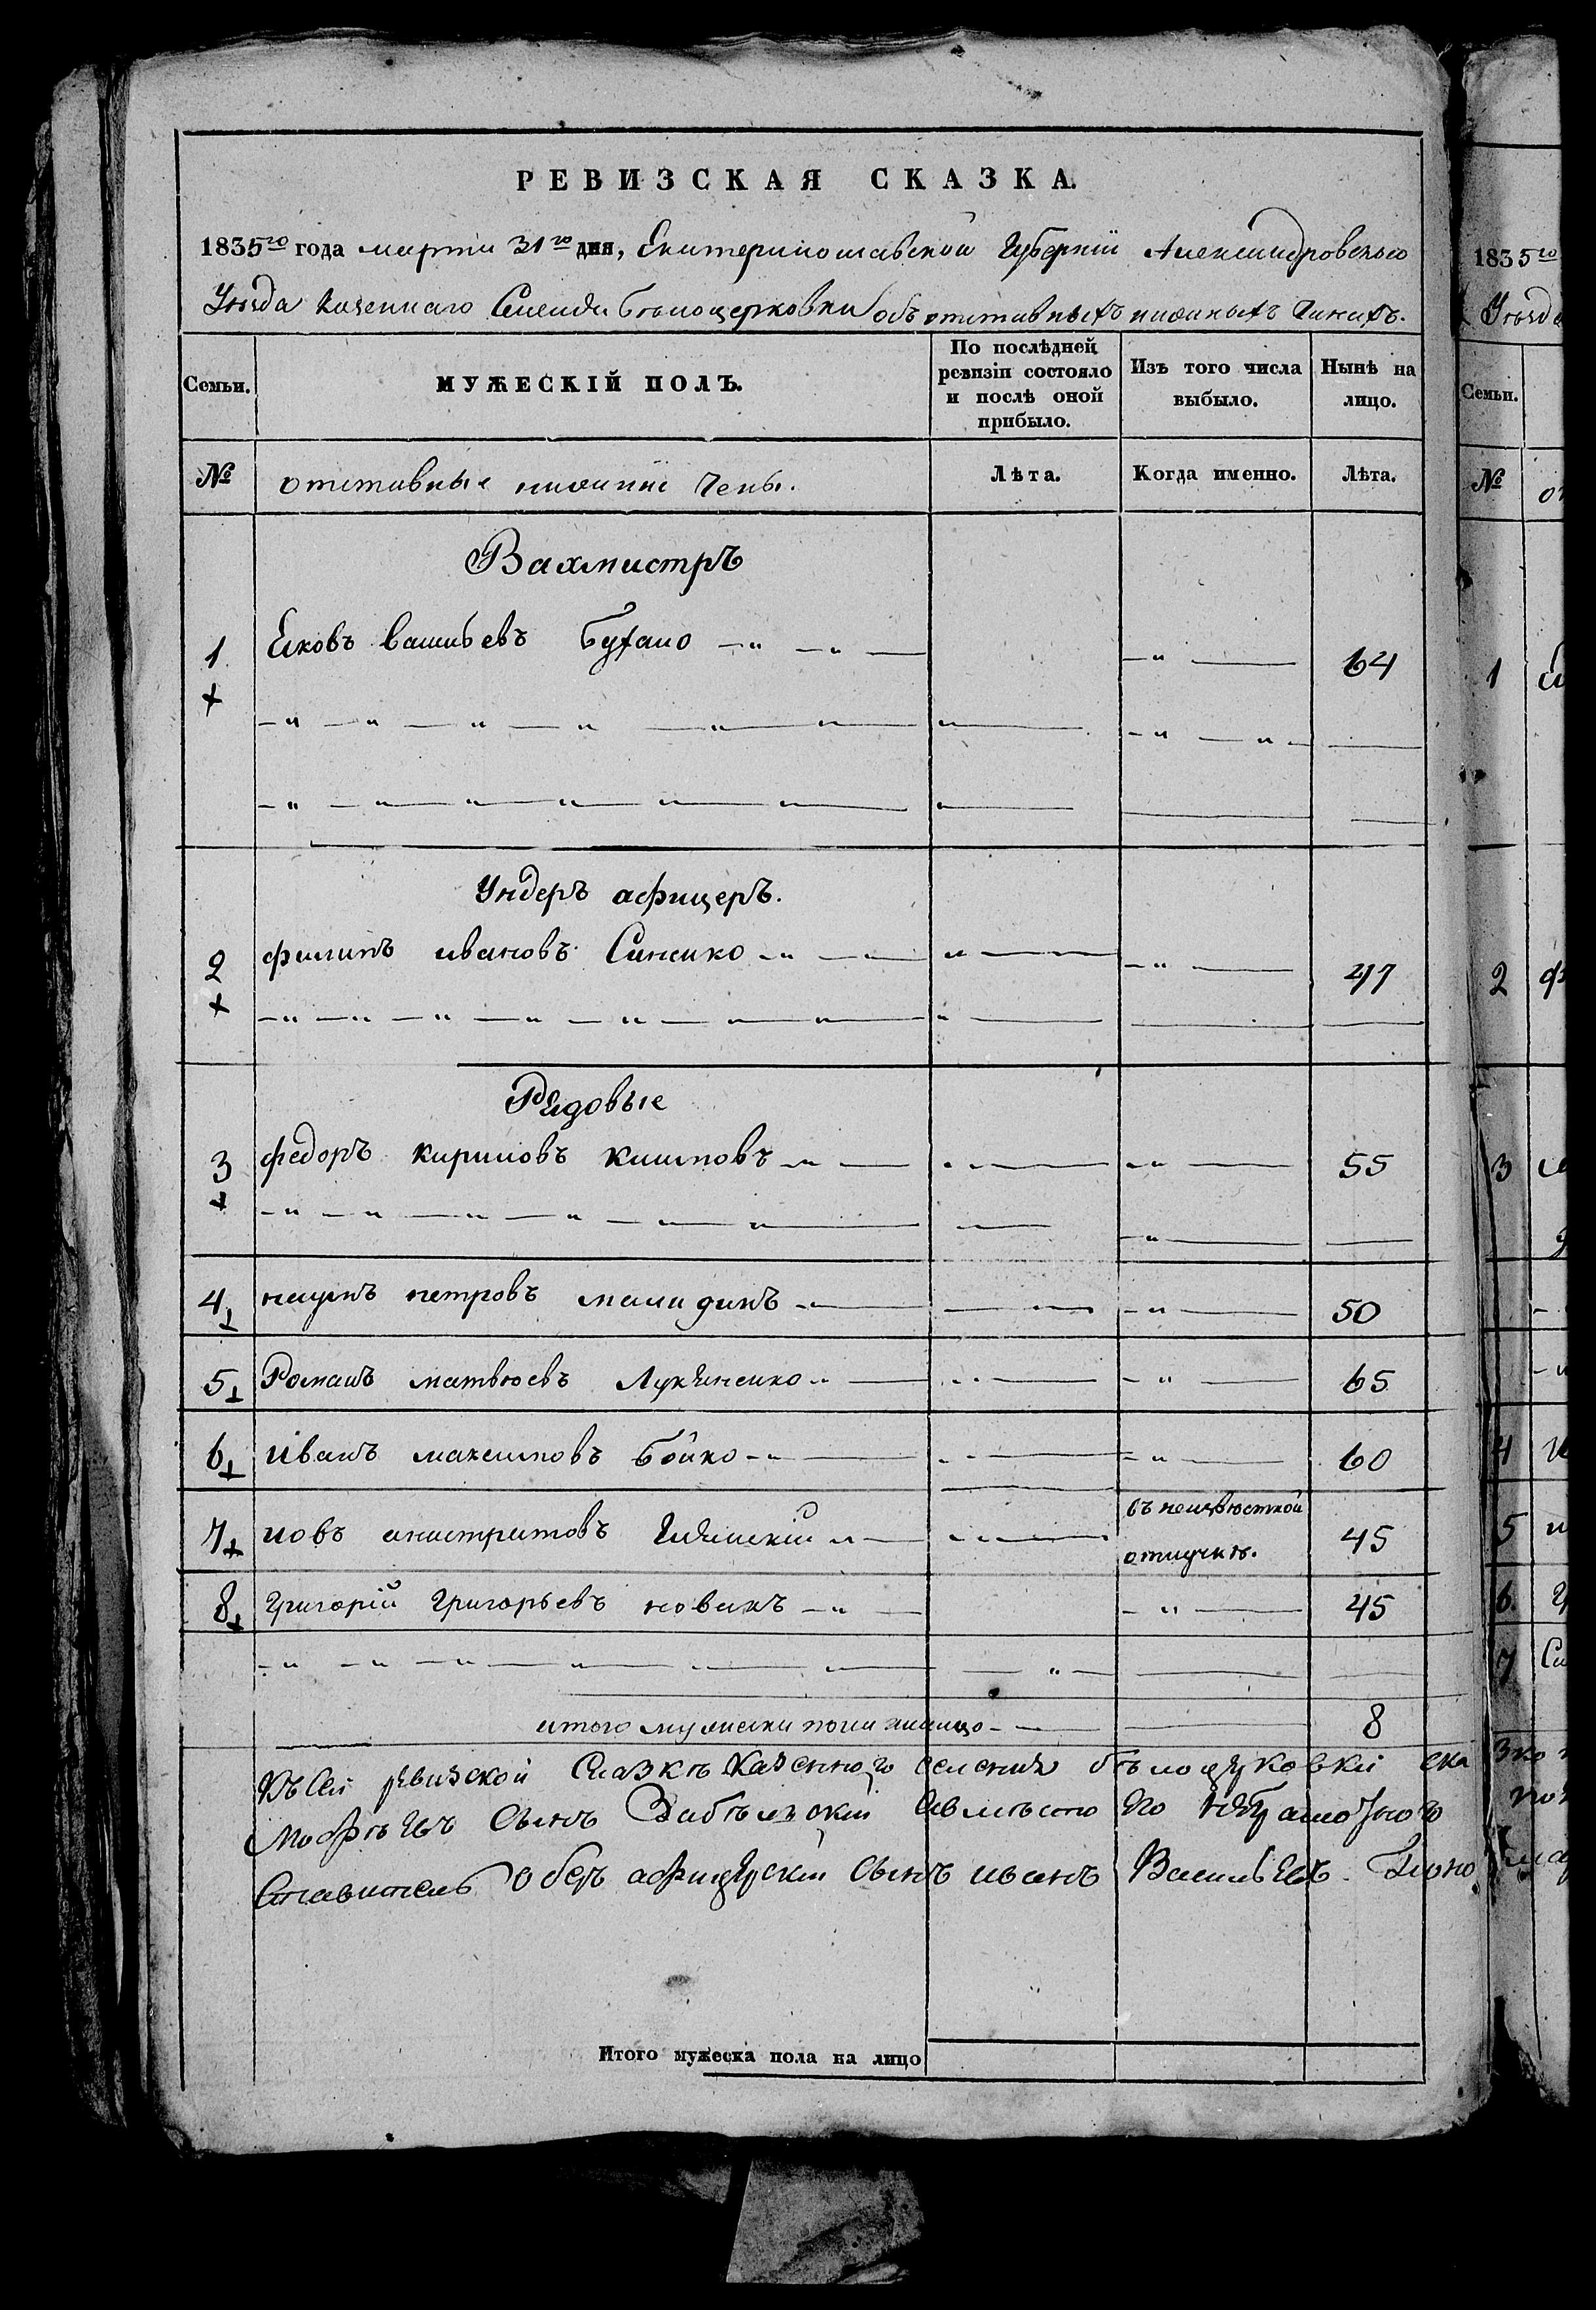 РЕВИЗСКАЯ СКАЗКА.
1835го года марта 31го дня, Екатеринославской Губернiи Александровскаго
Уѣзда казеннаго Селенiя Бѣлоцерковки объ отставныхъ нижныхъ Чинахъ.
Семьи. МУЖЕСКIЙ ПОЛЪ. По послѣдней ревизiи состояло и послѣ оной прибыло. Изъ того числа выбыло. Нынѣ на лицо.
№ отставные нижнiе Чены. Лѣта. Когда именно. Лѣта.
Вахмистръ
1 Яковъ васильевъ 64
Ундеръ афицеръ.
2 филипъ ивановъ Синенко 47
Рядовые
3 федоръ кириловъ 55
4 наумъ петровъ 50
5 Романъ матвѣевъ Лукяненко 65
6 Иванъ максимовъ Бойко 60
7 иовъ въ неизвѣстной отлучкѣ. 45
8 Григорiй Григорьевъ новакъ 45
итого мужеска пола налицо 8
Къ сей ревизской Сказкѣ казенного селения бѣлоцерковки ска
сынъ вмѣсто его неграмотного
Ставитель обер афицерский сынъ иванъ Васильевъ
Итого мужеска пола на лицо
1835го
Уѣзд
Семьи.
№
1
2
3
4
5
6.
7